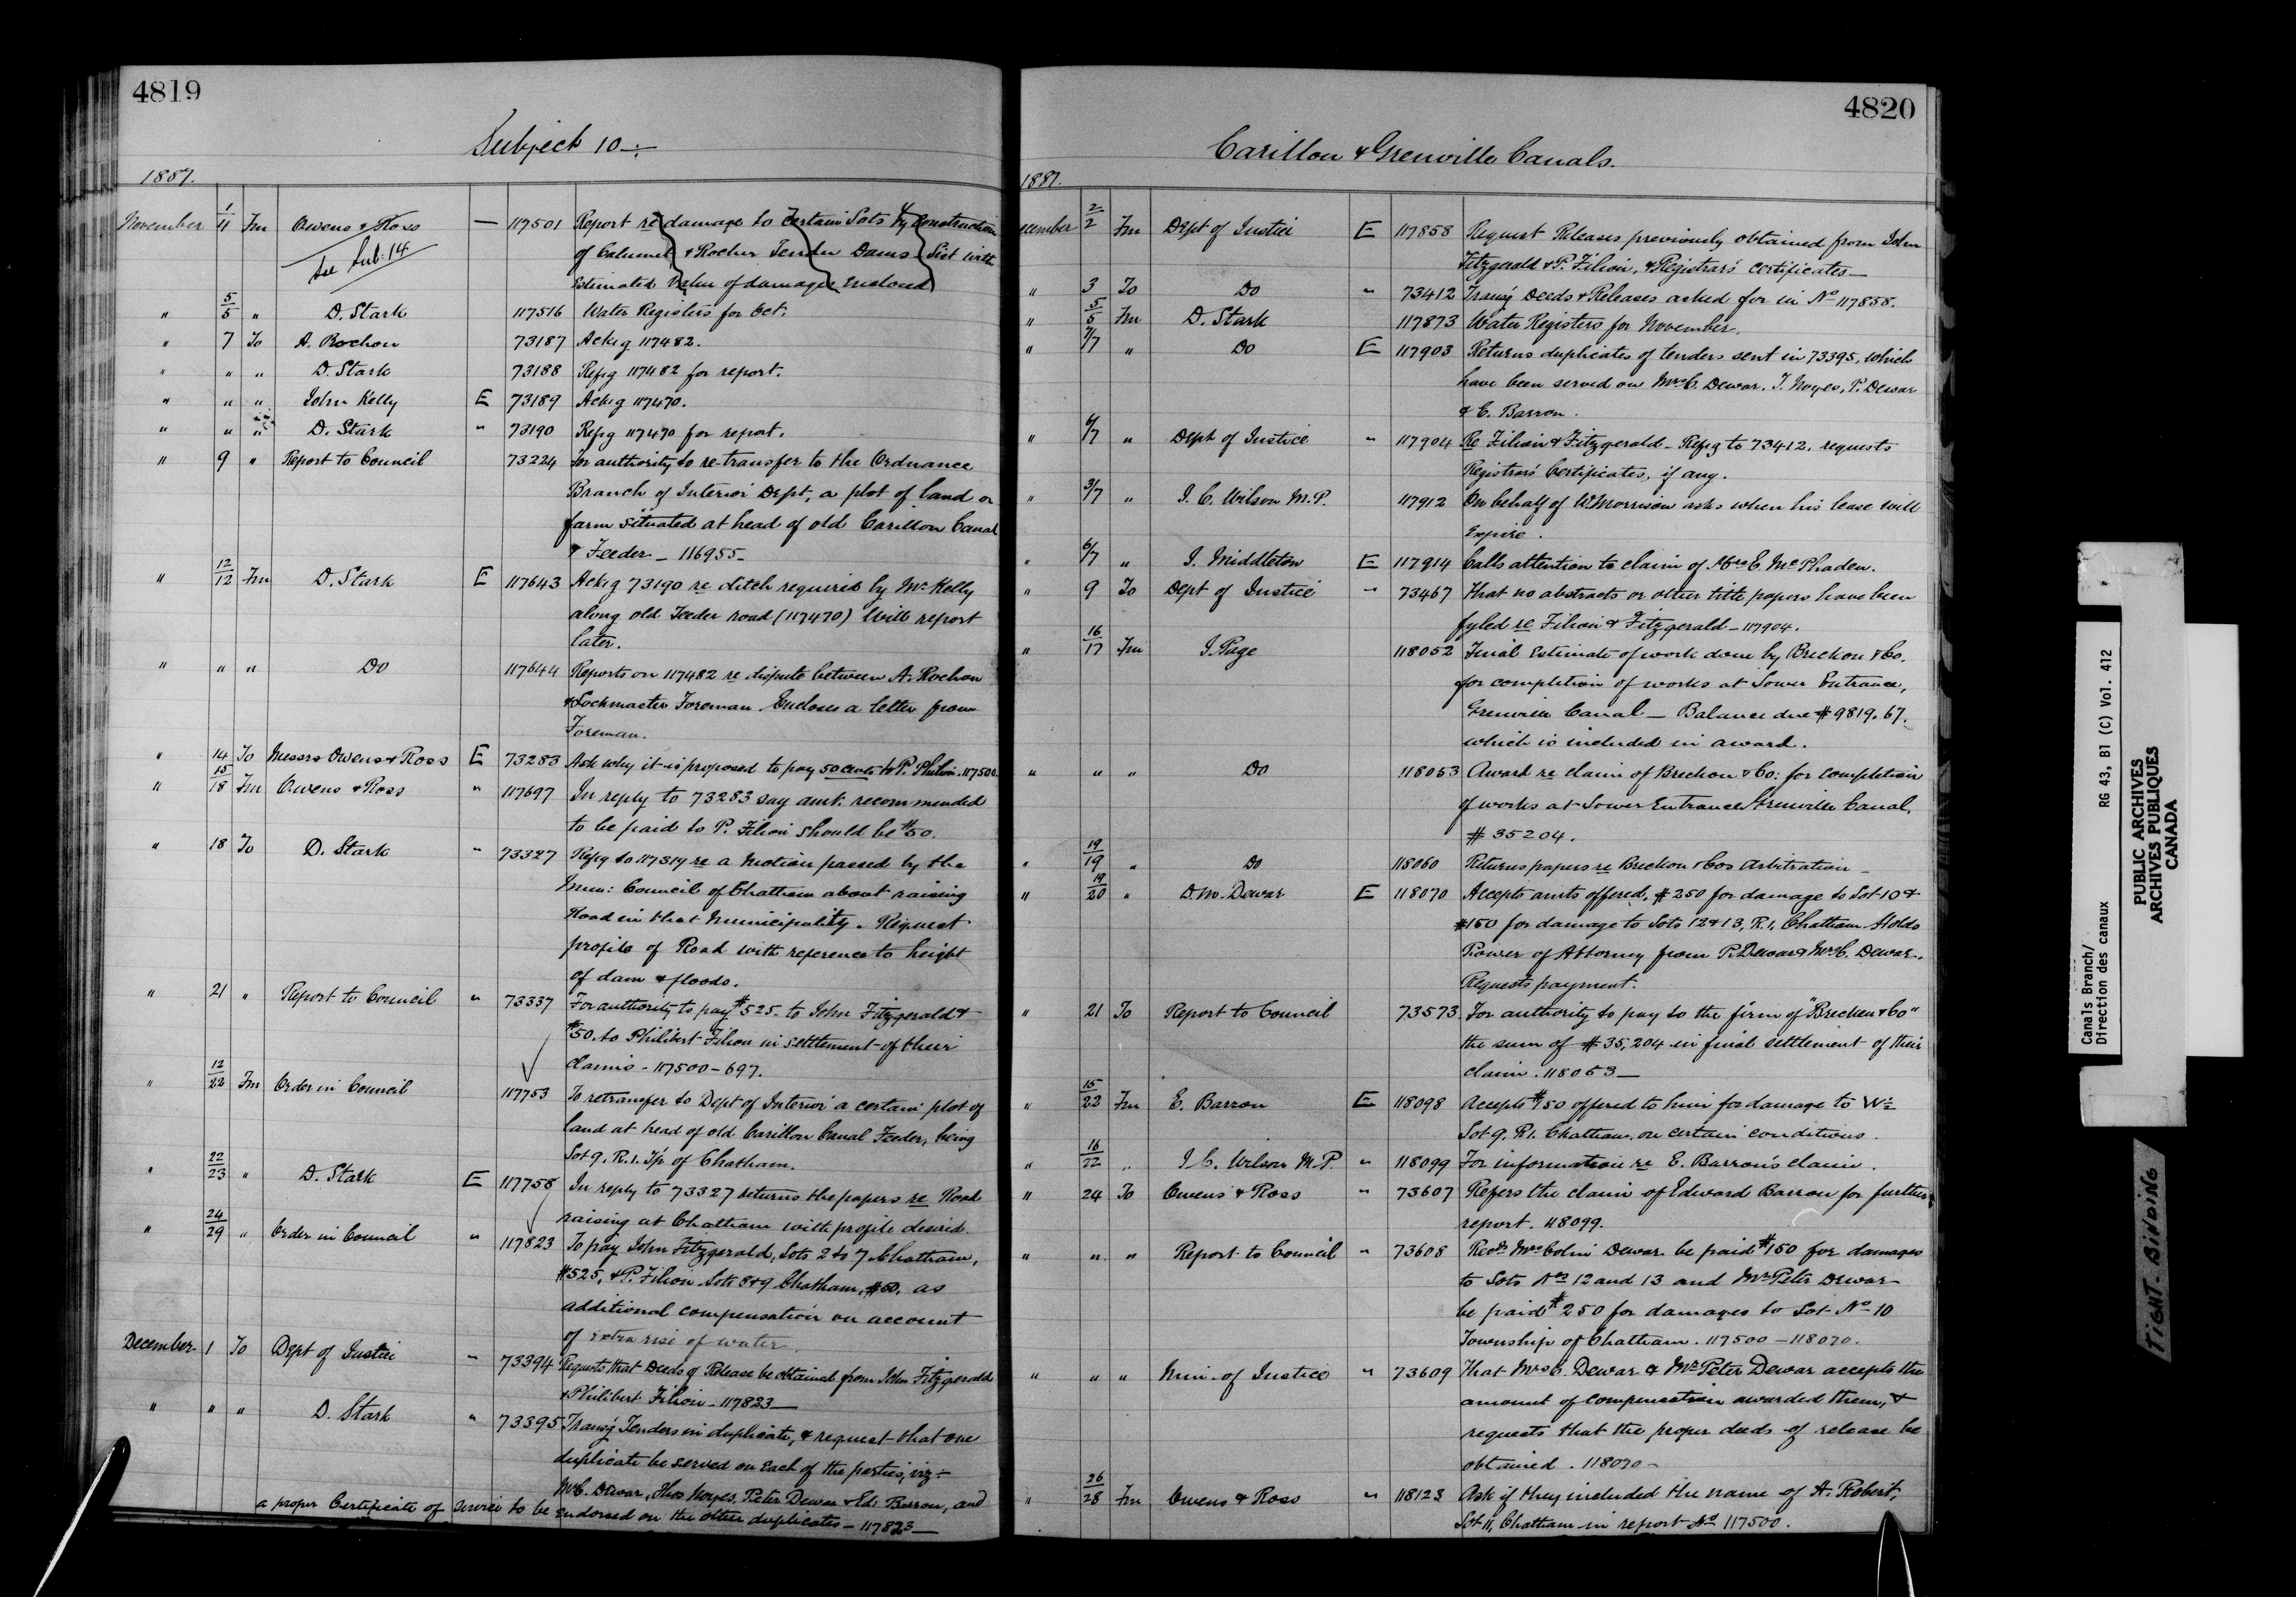 4819
Subject 10 :-
1887.
November 1/4 Fm Owens & Ross — 117501 Report re damage to certain Lots by construction
See Sub: 14 of Calumet & Rocher Fendu Dams. List with
Estimated value of damages enclosed
" 5/5 " D. Stark 117516 Water Registers for Oct.
" 7 To A. Rochon 73187 Ackg 117482.
" " " D. Stark 73188 Refg 117482 for report.
" " " John Kelly E 73189 Ackg 117470.
" " " D. Stark " 73190 Refg 117470 for report.
" 9 " Report to Council 73224 For authority to re-transfer to the Ordnance
Branch of Interior Dept, a plot of land or
farm situated at head of old Carillon Canal
& Feeder — 116955 —
" 12/12 Fm D. Stark E 117643 Ackg 73190 re ditch required by Mr Kelly
along old Feeder road (117470) Will report
later.
" " " Do 117644 Reports on 117482 re dispute between A. Rochon
& Lockmaster Foreman. Encloses a letter from
Foreman.
" 14 To Messrs Owens & Ross E 73283 Ask why it is proposed to pay 50 cents to P. Philion. 117500.
" 15/18 Fm Owens & Ross " 117697 In reply to 73283 say amt. recommended
to be paid to P. Filion should be $50.
" 18 To D. Stark " 73327 Refg to 117319 re a Motion passed by the
Mun: Council of Chatham about raising
Road in that Municipality. Request
profile of Road with reference to height
of dam & floods.
" 21 " Report to Council " 73337 For authority to pay $525 to John Fitzgerald &
$50. to Philibert Filion in settlement of their
claims - 117500 - 697.
" 12/22 Fm Order in Council 117753 To retransfer to Dept of Interior a certain plot of
land at head of old Carillon Canal Feeder, being
Lot 9. R. 1. Tp of Chatham.
" 22/23 " D. Stark E 117758 In reply to 73327 returns the papers re Road
raising at Chatham with profile desired.
" 24/29 " Order in Council " 117823 To pay John Fitzgerald, Lots 2 to 7 Chatham,
$525, & P. Filion Lots 8 & 9 Chatham, $50. as
additional compensation on account
of extra rise of water.
December 1 To Dept of Justice " 73394 Requests that Deeds of Release be obtained from John Fitzgerald
& Philibert Filion - 117823 —
" " " D. Stark " 73395 Transg Tenders in duplicate, & request that one
duplicate be served on each of the parties, viz :-
Mrs C. Dewar, Thos Noyes, Peter Dewar & Ed. Barron, and
a proper Certificate of Service to be endorsed on the other duplicates — 117823 —
4820
Carillon & Grenville Canals.
1887.
ecember 2/2 Fm Dept of Justice E 117858 Request Releases previously obtained from John
Fitzgerald & P. Filion, & Registrar's certificates —
" 3 To Do " 73412 Transg Deeds & Releases asked for in No 117858.
" 5/5 Fm D. Stark 117873 Water Registers for November.
" 7/7 " Do E 117903 Returns duplicates of tenders sent in 73395, which
have been served on Mrs C. Dewar. T. Noyes, P. Dewar
& E. Barron.
" 6/7 " Dept of Justice " 117904 Re Filion & Fitzgerald - Refg to 73412, requests
Registrars Certificates, if any.
" 3/7 " J. C. Wilson M.P. 117912 On behalf of W. Morrison asks when his lease will
Expire.
" 6/7 " J. Middleton E 117914 Calls attention to claim of Mrs C. McPhaden.
" 9 To Dept of Justice " 73467 That no abstracts or other title papers have been
fyled re Filion & Fitzgerald — 117904.
" 16/17 Fm J. Page 118052 Final Estimate of work done by Breckon & Co.
for completion of works at Lower Entrance,
Grenville Canal — Balance due $9819.67.
which is included in award.
" " " Do 118053 Award re claim of Breckon & Co: for completion
of works at Lower Entrance Grenville Canal,
$35204.
" 19/19 " Do 118060 Returns papers re Breckon & Cos Arbitration —
" 19/20 " D. M. Dewar E 118070 Accepts amts offered, $250 for damage to Lot 10 &
$150 for damage to Lots 12 & 13, R. 1, Chatham. Holds
Power of Attorney from P. Dewar & Mrs C. Dewar.
Requests payment.
" 21 To Report to Council 73573 For authority to pay to the firm of "Brecken & Co"
the sum of $35,204 in final settlement of their
claim. 118053 —
" 15/22 Fm E. Barron E 118098 Accepts $150 offered to him for damage to W½
Lot 9, R 1. Chatham, on certain conditions.
" 16/22 " J C. Wilson M.P. " 118099 For information re E. Barron's claim.
" 24 To Owens & Ross " 73607 Refers the claim of Edward Barron for further
report. 118099.
" " " Report to Council " 73608 Recds Mrs Colin Dewar be paid $150 for damages
to Lots Nos 12 and 13 and Mr Peter Dewar
be paid $250 for damages to Lot No 10
Township of Chatham. 117500 — 118070.
" " " Min. of Justice " 73609 That Mrs C. Dewar & Mr Peter Dewar accepts the
amount of compensation awarded them, &
requests that the proper deeds of release be
obtained. 118070 —
" 26/28 Fm Owens & Ross " 118123 Ask if they included the name of H. Robert,
Lot 11, Chatham in report No 117500.
Canals Branch/
Direction des canaux
RG 43, B1 (C) Vol. 412
PUBLIC ARCHIVES
ARCHIVES PUBLIQUES
CANADA
TIGHT. BINDING